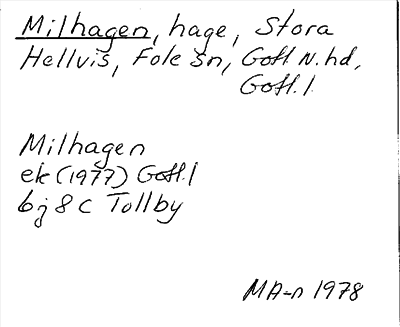 Milhagen, hage, Stora
Hellvis, Fole sn, Gotl N. hd,
Gotl. l
Milhagen
ek (1977) Gotl. l
6j 8 c Tollby
MA-n 1978